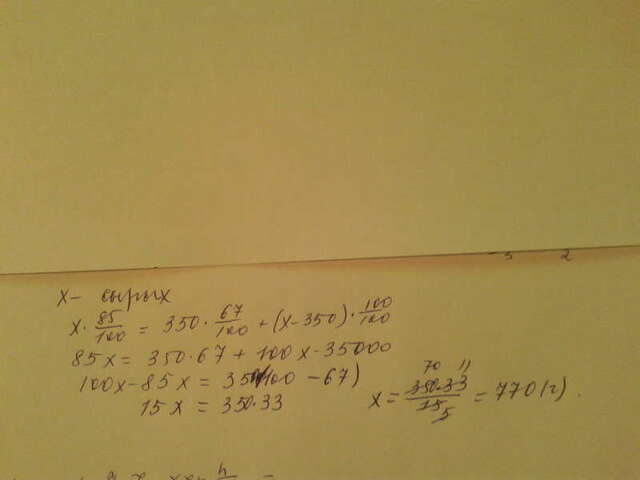 5 2
x- сырых
x · 85/100 = 350 · 67/100 + (x-350) · 100/100
85x = 350·67 + 100x - 35000
100x - 85x = 350(100 - 67)
15x = 350·33
70 11
x = 350·33/15 5 = 770(г).